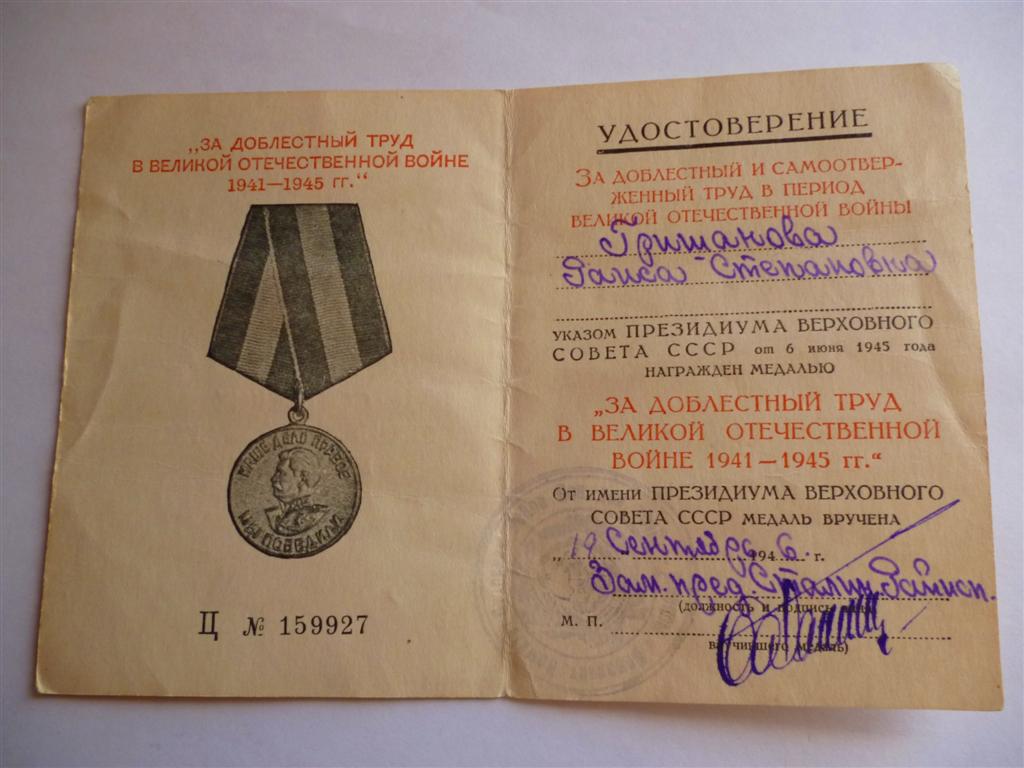 „ЗА ДОБЛЕСТНЫЙ ТРУД
В ВЕЛИКОЙ ОТЕЧЕСТВЕННОЙ ВОЙНЕ
1941—1945 гг.“
НАШЕ ДЕЛО ПРАВОЕ
МЫ ПОБЕДИЛИ
Ц № 159927
УДОСТОВЕРЕНИЕ
ЗА ДОБЛЕСТНЫЙ И САМООТВЕР-
ЖЕННЫЙ ТРУД В ПЕРИОД
ВЕЛИКОЙ ОТЕЧЕСТВЕННОЙ ВОЙНЫ
Гришанова
Раиса Степановна
УКАЗОМ ПРЕЗИДИУМА ВЕРХОВНОГО
СОВЕТА СССР от 6 июня 1945 года
НАГРАЖДЕН МЕДАЛЬЮ
„ЗА ДОБЛЕСТНЫЙ ТРУД
В ВЕЛИКОЙ ОТЕЧЕСТВЕННОЙ
ВОЙНЕ 1941—1945 гг.“
От имени ПРЕЗИДИУМА ВЕРХОВНОГО
СОВЕТА СССР МЕДАЛЬ ВРУЧЕНА
„19 Сентября 1946 г.
Зам. пред Сталин. Райисп.
(должность и подпись
М. П.
вручившего медаль)